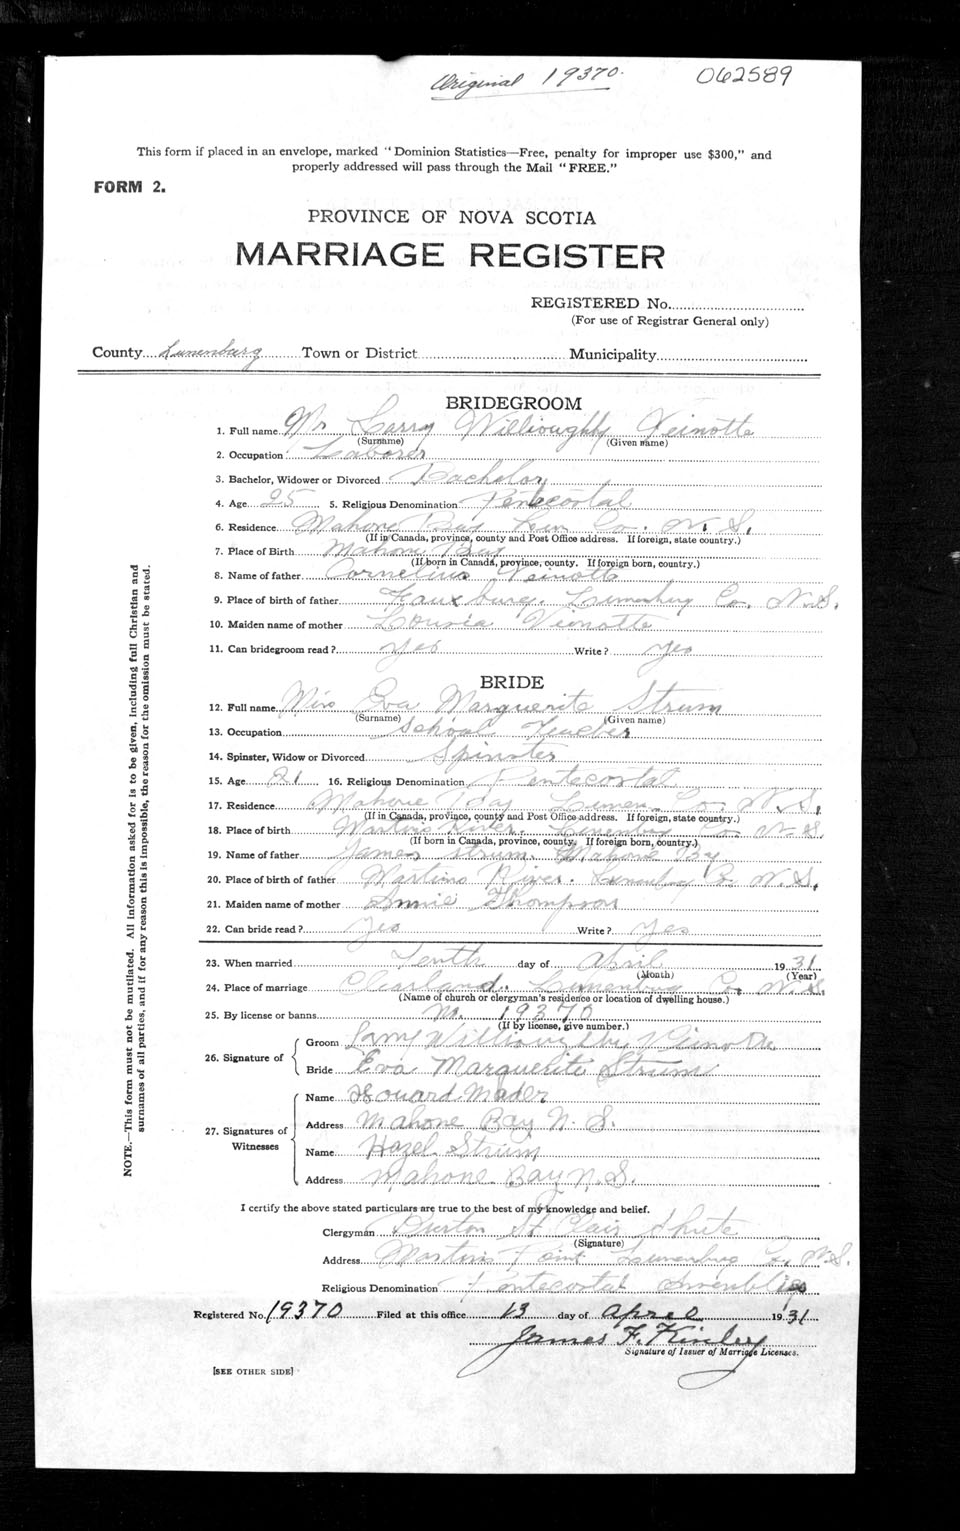 Original 19370.
062589
This form if placed in an envelope, marked "Dominion Statistics—Free, penalty for improper use $300," and
properly addressed will pass through the Mail "FREE."
FORM 2.
PROVINCE OF NOVA SCOTIA
MARRIAGE REGISTER
REGISTERED No.
(For use of Registrar General only)
County Lunenburg Town or District Municipality
BRIDEGROOM
1. Full name Mr Larry Willioughby Veinotte
(Surname) (Given name)
2. Occupation Laborer
3. Bachelor, Widower or Divorced Bachelor
4. Age 25 5. Religious Denomination Pentecostal
6. Residence Mahone Bay Lun Co. N.S.
(If in Canada, province, county and Post Office address. If foreign, state country.)
7. Place of Birth Mahone Bay
(If born in Canada, province, county. If foreign born, country.)
8. Name of father Cornelius Veinotte
9. Place of birth of father Fauxburg. Lunenburg Co. N.S.
10. Maiden name of mother Veinotte
11. Can bridegroom read? Yes Write? Yes
BRIDE
12. Full name Miss Eva Marguerite Strum
(Surname) (Given name)
13. Occupation School Teacher
14. Spinster, Widow or Divorced Spinster
15. Age 21 16. Religious Denomination Pentecostal
17. Residence Mahone Bay Lunen. Co. N.S.
(If in Canada, province, county and Post Office address. If foreign, state country.)
18. Place of birth Martins River. Lunenburg Co. N.S
(If born in Canada, province, county. If foreign born, country.)
19. Name of father James Strum. Mahone Bay
20. Place of birth of father Martins River. Lunenburg Co. N.S.
21. Maiden name of mother Annie Thompson
22. Can bride read? Yes Write? Yes
23. When married Tenth day of April 1931
(Month) (Year)
24. Place of marriage Clearland. Lunenburg Co. N.S.
(Name of church or clergyman's residence or location of dwelling house.)
25. By license or banns No. 19370
(If by license, give number.)
26. Signature of
Groom Larry Willioughby Veinotte
Bride Eva Marguerite Strum
27. Signatures of
Witnesses
Name Howard Mader
Address Mahone Bay N.S.
Name Hazel Strum
Address Mahone Bay N.S.
I certify the above stated particulars are true to the best of my knowledge and belief.
Clergyman Burton St Clair Shute
(Signature)
Address Martins Point Lunenburg Co. N.S.
Religious Denomination Pentecostal Assemblies
Registered No. 19370 Filed at this office 13 day of April 1931
James F. Kinley
Signature of Issuer of Marriage Licenses.
[SEE OTHER SIDE]
NOTE.—This form must not be mutilated. All information asked for is to be given, including full Christian and
surnames of all parties, and if for any reason this is impossible, the reason for the omission must be stated.